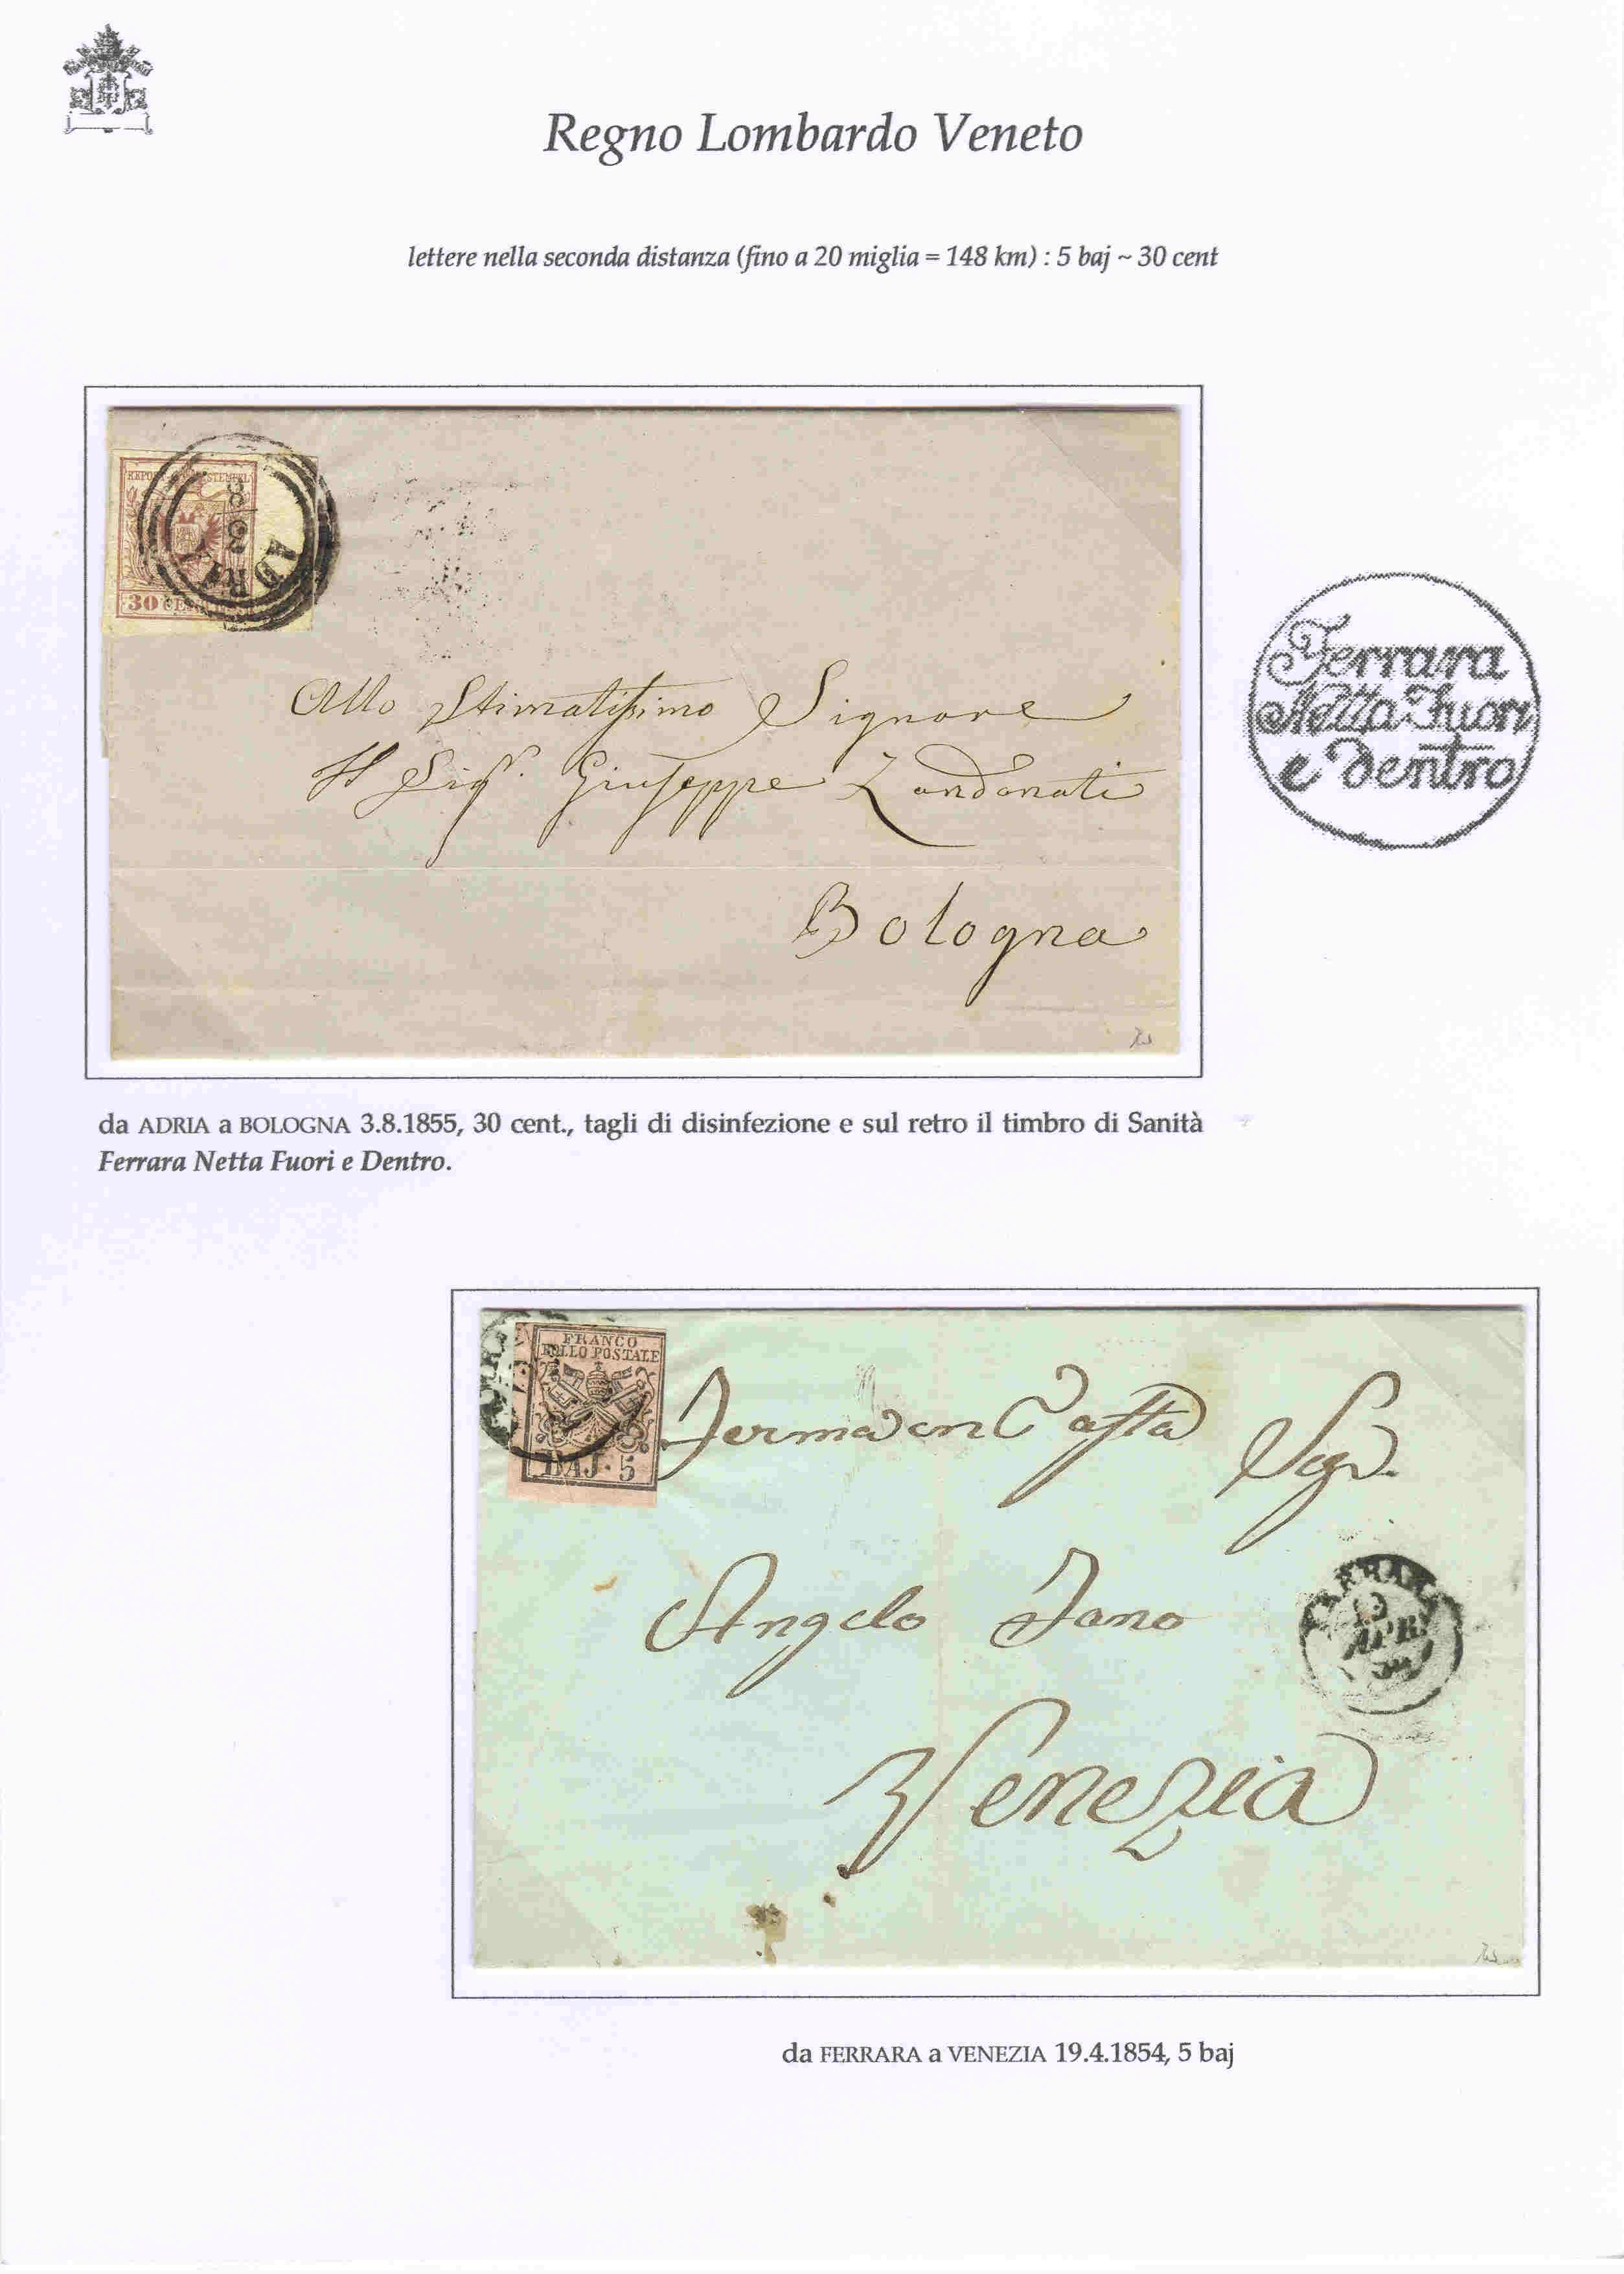 Regno Lombardo Veneto
lettere nella seconda distanza (fino a 20 miglia = 148 km) : 5 baj ~ 30 cent
30 CE
ADRIA
3
8
Allo Stimatissimo Signore
Il Sigr. Giuseppe Zandonati
Bologna
Ferrara
Netta Fuori
e Dentro
da ADRIA a BOLOGNA 3.8.1855, 30 cent., tagli di disinfezione e sul retro il timbro di Sanità
Ferrara Netta Fuori e Dentro.
FRANCO
BOLLO POSTALE
BAJ. 5
Ferma in Posta Sigr.
Angelo
FERRARA
19
APR
54
Venezia
da FERRARA a VENEZIA 19.4.1854, 5 baj